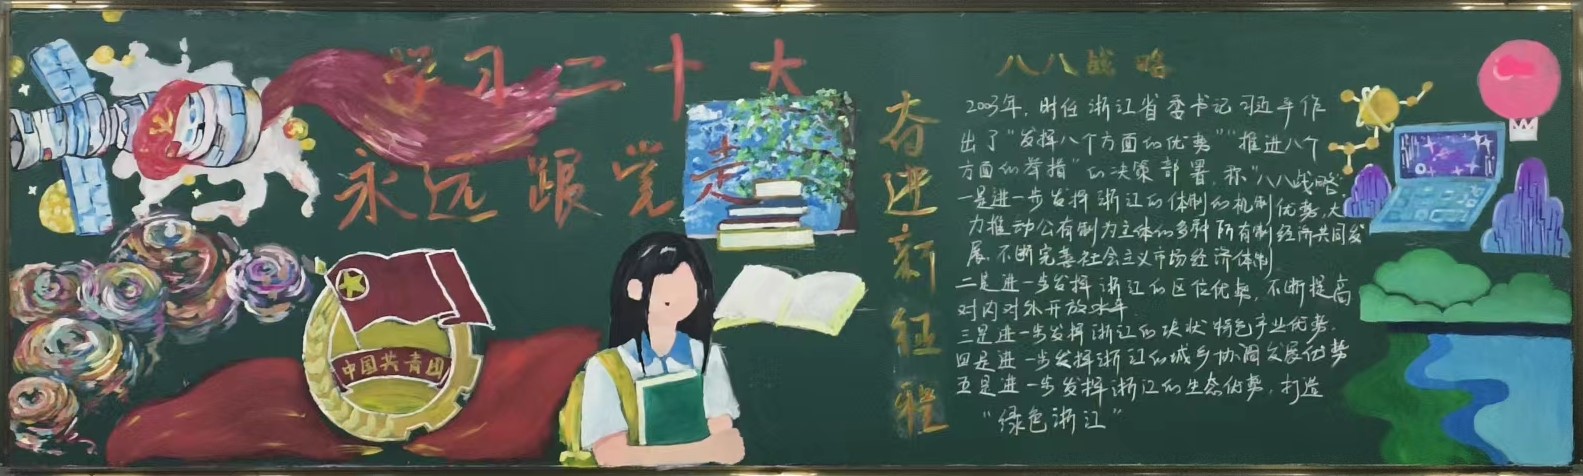 学习二十大
永远跟党走
中国共青团
奋进新征程
八八战略
2003年，时任浙江省委书记习近平作
出了“发挥八个方面的优势”“推进八个
方面的举措”的决策部署，称“八八战略”
一是进一步发挥浙江的体制的机制优势，大
力推动公有制为主体的多种所有制经济共同发
展，不断完善社会主义市场经济体制
二是进一步发挥浙江的区位优势，不断提高
对内对外开放水平
三是进一步发挥浙江的块状特色产业优势，
四是进一步发挥浙江的城乡协调发展优势
五是进一步发挥浙江的生态优势，打造
“绿色浙江”